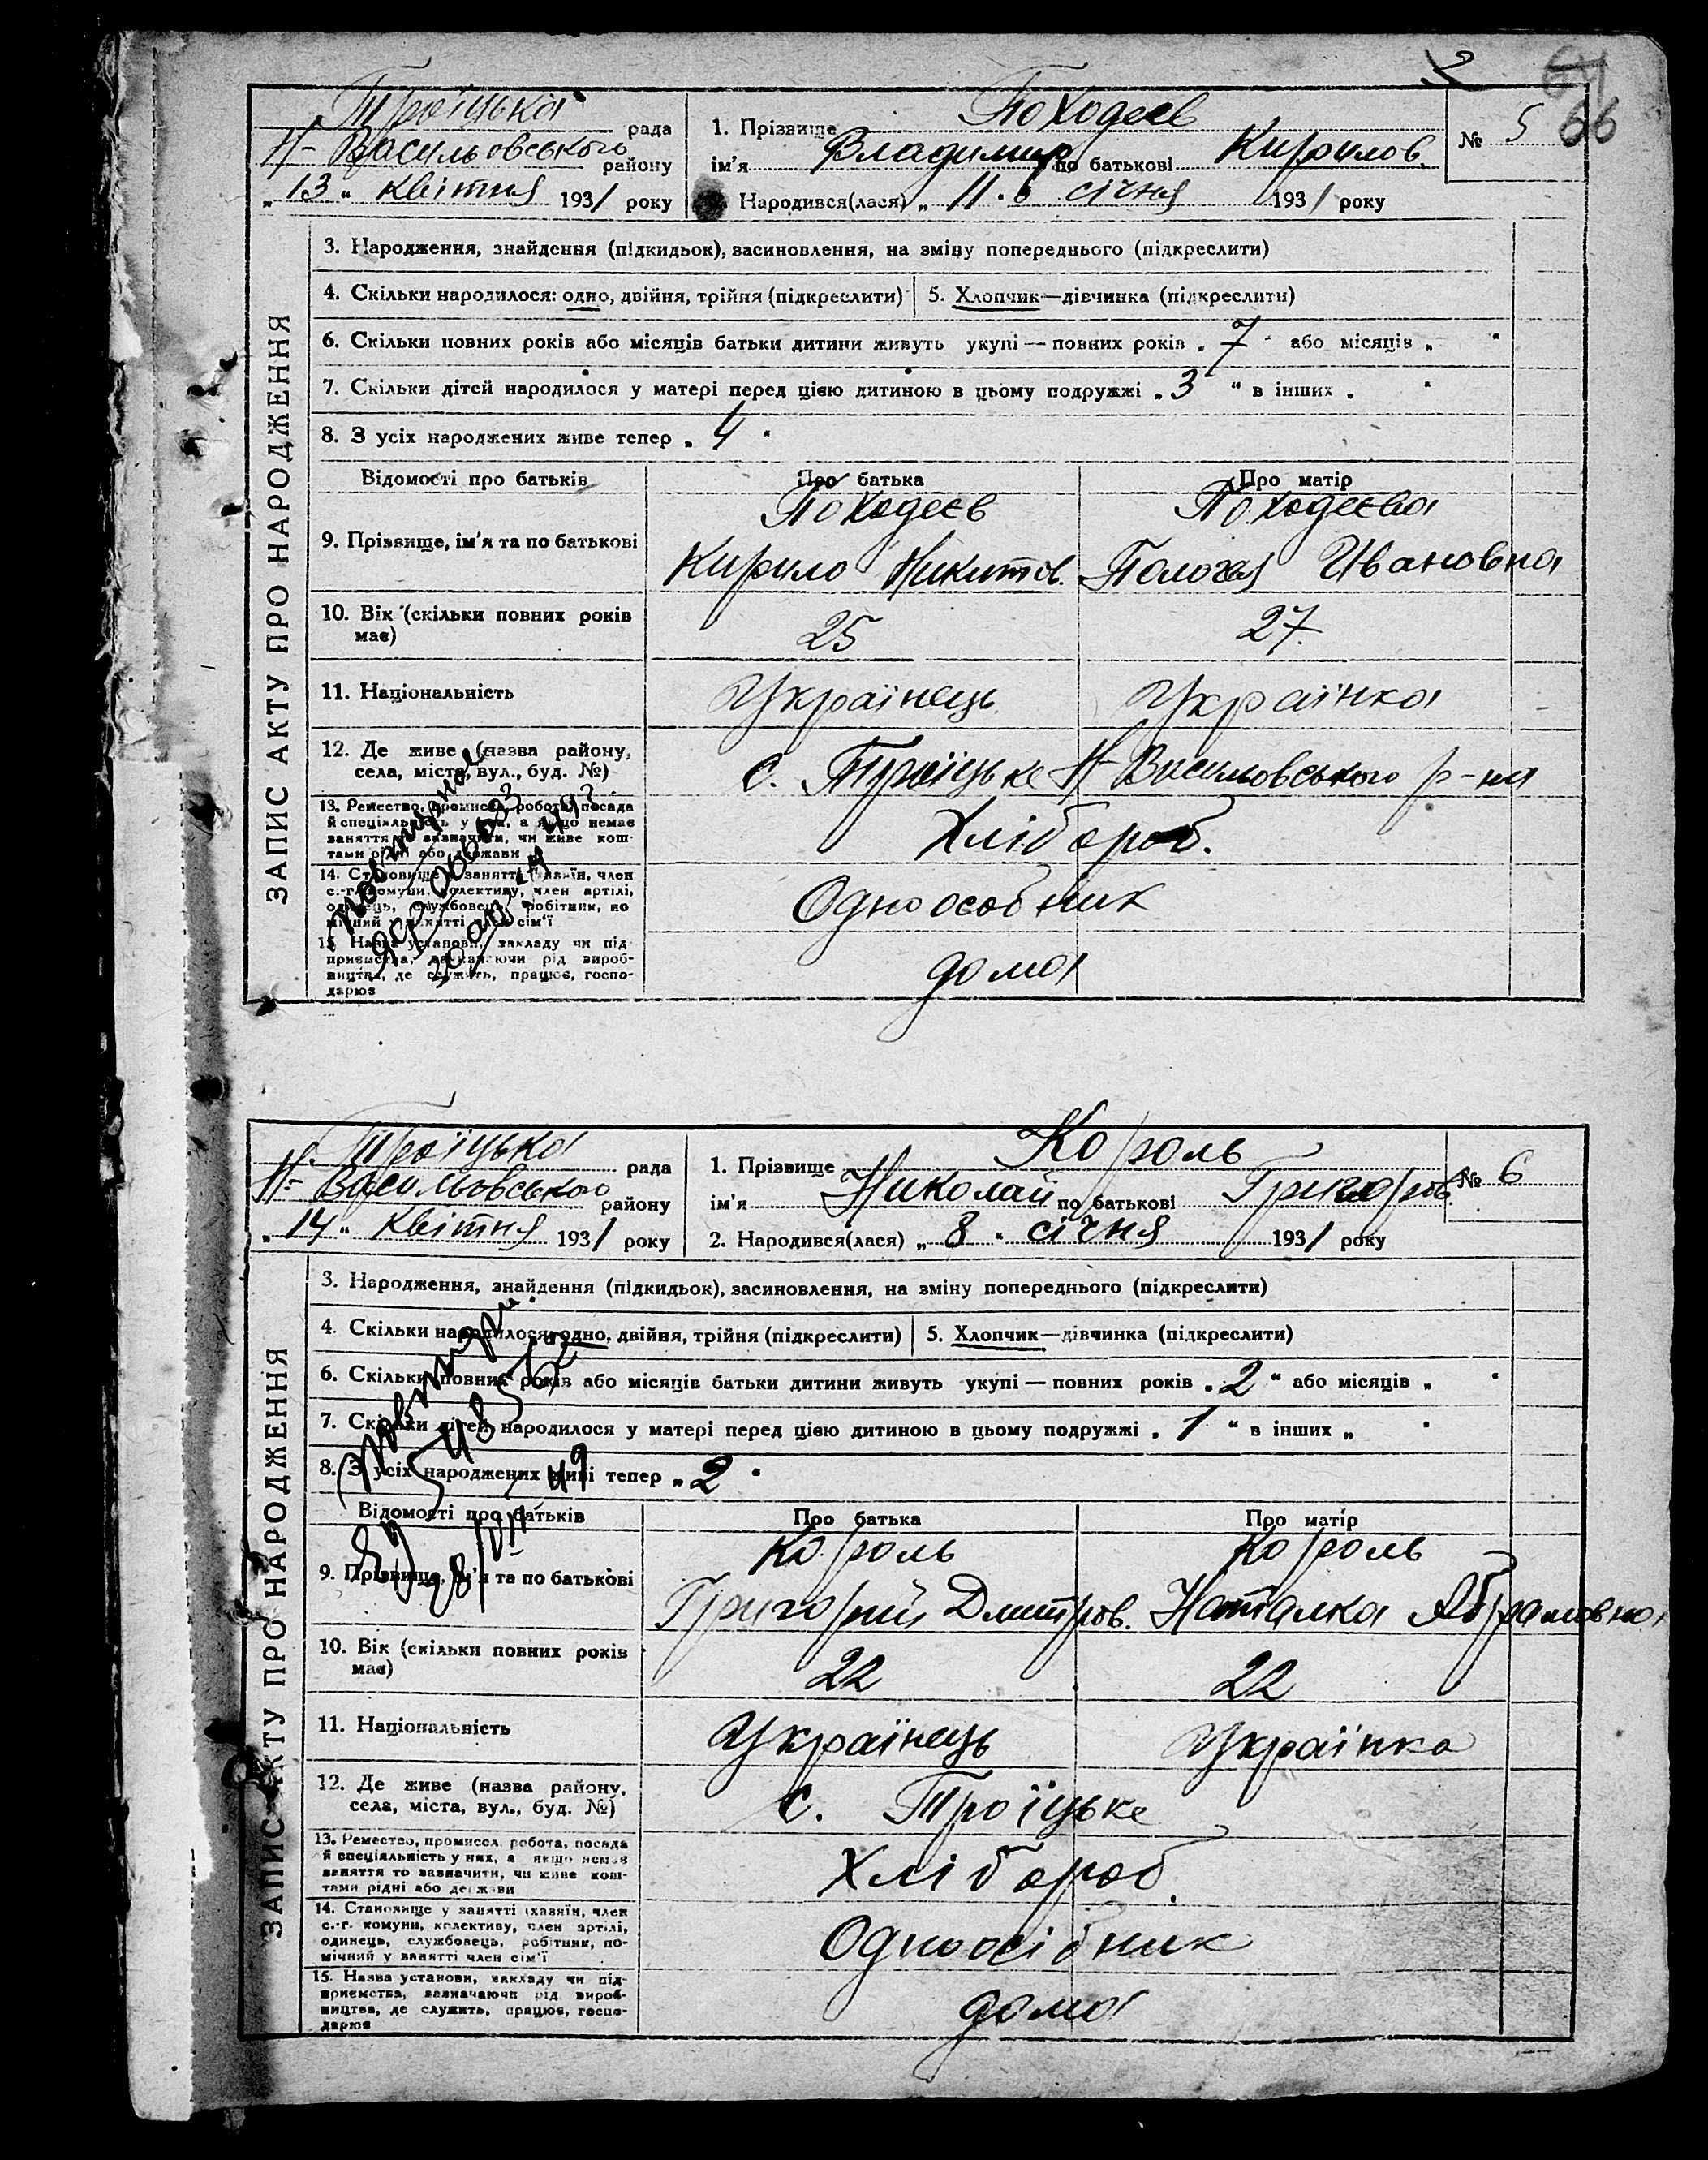 64
66
Троїцька рада
Н-Васильовського району
„13“ квітня 1931 року
1. Прізвище Походеєв
ім'я Владимир по батькові Кирилов
Народився(лася) „11“ січня 1931 року
№ 5
ЗАПИС АКТУ ПРО НАРОДЖЕННЯ
3. Народження, знайдення (підкидьок), засиновлення, на зміну попереднього (підкреслити)
4. Скільки народилося: одно, двійня, трійня (підкреслити)
5. Хлопчик—дівчинка (підкреслити)
6. Скільки повних років або місяців батьки дитини живуть укупі — повних років „7“ або місяців „ “
7. Скільки дітей народилося у матері перед цією дитиною в цьому подружжі „3“ в інших „ “
8. З усіх народжених живе тепер „4“
Відомості про батьків Про батька Про матір
9. Прізвище, ім'я та по батькові
Походеєв
Кирило Никитов.
Походеєва
Ивановна
10. Вік (скільки повних років
має)
25 27
11. Національність Українець Українка
12. Де живе (назва району,
села, міста, вул., буд. №)
с. Троїцьке Н-Васильовського р-на
13. Ремество, промисел, робота, посада
й спеціяльність у них, а якщо немає
заняття то зазначити, чи живе кош-
тами рідні або держави
Хлібороб.
14. Становище у занятті (хазяїн, член
с.-г. комуни, колективу, член артілі,
одинець, службовець, робітник, по-
мічний у занятті член сім'ї
Одноособник
15. Назва установи, закладу чи під-
приємства, зазначаючи рід вироб-
ництва, де служить, працює, госпо-
дарює
дома
повторное
Троїцька рада
Н-Васильовського району
„14“ квітня 1931 року
1. Прізвище Король
ім'я Николай по батькові Григоров.
2. Народився(лася) „8“ січня 1931 року
№ 6
ЗАПИС АКТУ ПРО НАРОДЖЕННЯ
3. Народження, знайдення (підкидьок), засиновлення, на зміну попереднього (підкреслити)
4. Скільки народилося: одно, двійня, трійня (підкреслити)
5. Хлопчик—дівчинка (підкреслити)
6. Скільки повних років або місяців батьки дитини живуть укупі — повних років „2“ або місяців „ “
7. Скільки дітей народилося у матері перед цією дитиною в цьому подружжі „1“ в інших „ “
8. З усіх народжених живі тепер „2“
Відомості про батьків Про батька Про матір
9. Прізвище, ім'я та по батькові
Король
Григорий Дмитров.
Король
Наталка Абрамовна
10. Вік (скільки повних років
має)
22 22
11. Національність Українець Українка
12. Де живе (назва району,
села, міста, вул., буд. №)
с. Троїцьке
13. Ремество, промисел, робота, посада
й спеціяльність у них, а якщо немає
заняття то зазначити, чи живе кош-
тами рідні або держави
Хлібороб.
14. Становище у занятті (хазяїн, член
с.-г. комуни, колективу, член артілі,
одинець, службовець, робітник, по-
мічний у занятті член сім'ї
Одноосібник
15. Назва установи, закладу чи під-
приємства, зазначаючи рід вироб-
ництва, де служить, працює, госпо-
дарює
дома